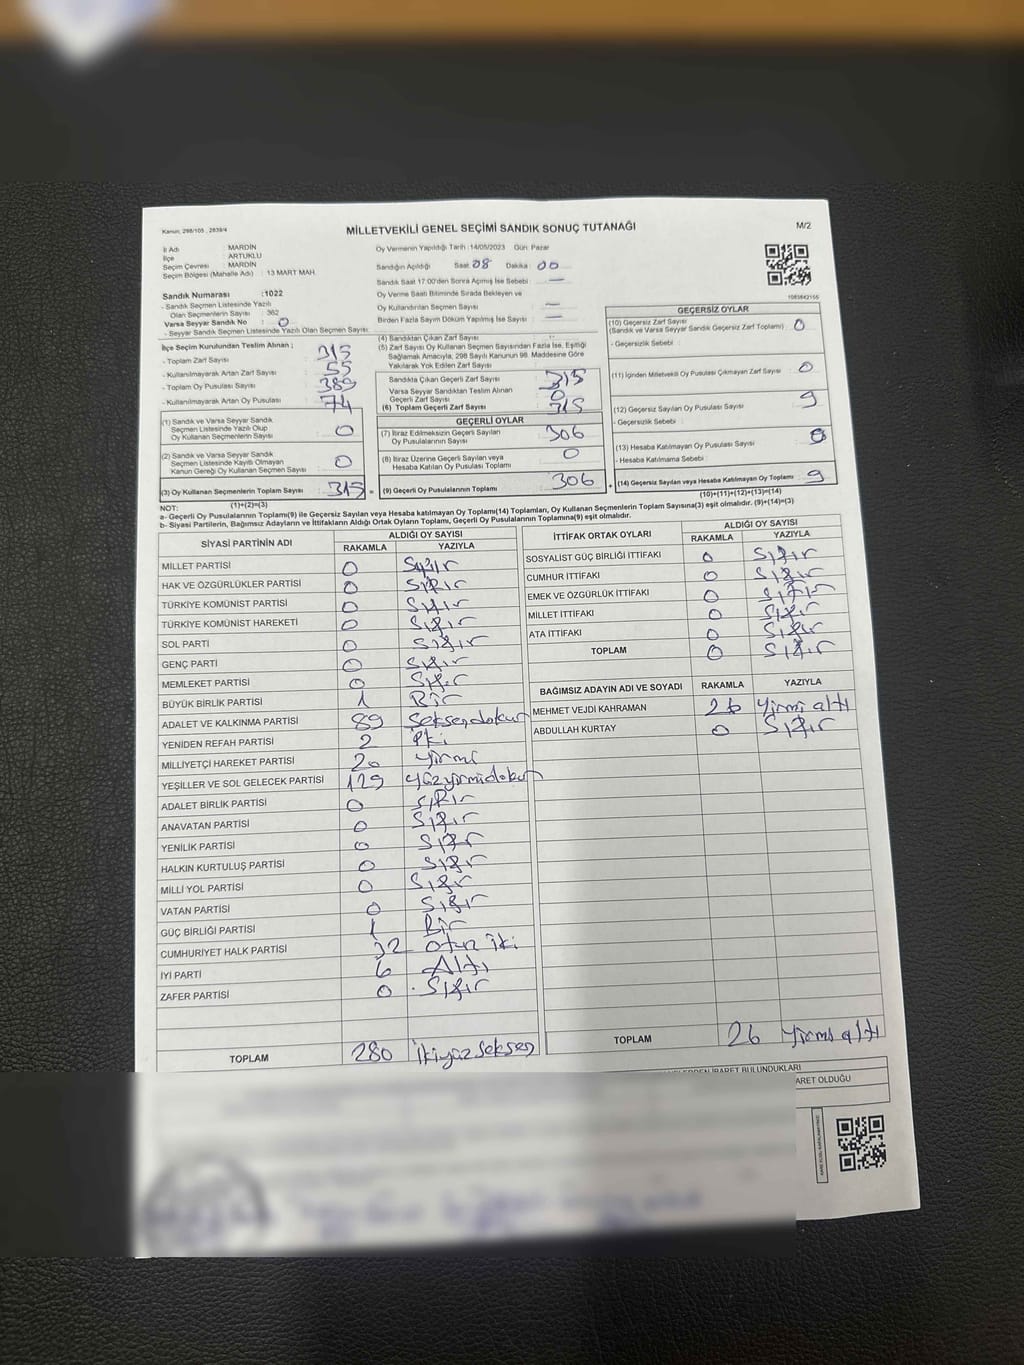 Kanun, 298/105, 2839/4
MİLLETVEKİLİ GENEL SEÇİMİ SANDIK SONUÇ TUTANAĞI
M/2
İl Adı : MARDİN
İlçe : ARTUKLU
Seçim Çevresi : MARDİN
Seçim Bölgesi (Mahalle Adı) : 13 MART MAH.
Sandık Numarası : 1022
- Sandık Seçmen Listesinde Yazılı
Olan Seçmenlerin Sayısı : 362
Varsa Seyyar Sandık No : 0
- Seyyar Sandık Seçmen Listesinde Yazılı Olan Seçmen Sayısı:
Oy Vermenin Yapıldığı Tarih :14/05/2023 Gün: Pazar
Sandığın Açıldığı Saat: 08 Dakika : 00
Sandık Saat 17:00'den Sonra Açımış İse Sebebi : —
Oy Verme Saati Bitiminde Sırada Bekleyen ve
Oy Kullandırılan Seçmen Sayısı : —
Birden Fazla Sayım Döküm Yapılmış İse Sayısı : —
1083842155
İlçe Seçim Kurulundan Teslim Alınan ;
- Toplam Zarf Sayısı : 315
- Kullanılmayarak Artan Zarf Sayısı : 55
- Toplam Oy Pusulası Sayısı : 389
- Kullanılmayarak Artan Oy Pusulası : 74
(1) Sandık ve Varsa Seyyar Sandık
Seçmen Listesinde Yazılı Olup
Oy Kullanan Seçmenlerin Sayısı : 0
(2) Sandık ve Varsa Seyyar Sandık
Seçmen Listesinde Kayıtlı Olmayan
Kanun Gereği Oy Kullanan Seçmen Sayısı : 0
(3) Oy Kullanan Seçmenlerin Toplam Sayısı : 315 =
(1)+(2)=(3)
(4) Sandıktan Çıkan Zarf Sayısı : —
(5) Zarf Sayısı Oy Kullanan Seçmen Sayısından Fazla İse, Eşitliği
Sağlamak Amacıyla, 298 Sayılı Kanunun 98. Maddesine Göre
Yakılarak Yok Edilen Zarf Sayısı :
Sandıkta Çıkan Geçerli Zarf Sayısı : 315
Varsa Seyyar Sandıktan Teslim Alınan
Geçerli Zarf Sayısı : 0
(6) Toplam Geçerli Zarf Sayısı : 315
GEÇERLİ OYLAR
(7) İtiraz Edilmeksizin Geçerli Sayılan
Oy Pusulalarının Sayısı : 306
(8) İtiraz Üzerine Geçerli Sayılan veya
Hesaba Katılan Oy Pusulası Toplamı : 0
(9) Geçerli Oy Pusulalarının Toplamı : 306 +
GEÇERSİZ OYLAR
(10) Geçersiz Zarf Sayısı
(Sandık ve Varsa Seyyar Sandık Geçersiz Zarf Toplamı) : 0
- Geçersizlik Sebebi :
(11) İçinden Milletvekili Oy Pusulası Çıkmayan Zarf Sayısı : 0
(12) Geçersiz Sayılan Oy Pusulası Sayısı : 9
- Geçersizlik Sebebi :
(13) Hesaba Katılmayan Oy Pusulası Sayısı : 0
- Hesaba Katılmama Sebebi :
(14) Geçersiz Sayılan veya Hesaba Katılmayan Oy Toplamı : 9
(10)+(11)+(12)+(13)=(14)
NOT:
a- Geçerli Oy Pusulalarının Toplamı(9) ile Geçersiz Sayılan veya Hesaba katılmayan Oy Toplamı(14) Toplamları, Oy Kullanan Seçmenlerin Toplam Sayısına(3) eşit olmalıdır. (9)+(14)=(3)
b- Siyasi Partilerin, Bağımsız Adayların ve İttifakların Aldığı Ortak Oyların Toplamı, Geçerli Oy Pusulalarının Toplamına(9) eşit olmalıdır.
SİYASİ PARTİNİN ADI ALDIĞI OY SAYISI
RAKAMLA YAZIYLA
MİLLET PARTİSİ 0 Sıfır
HAK VE ÖZGÜRLÜKLER PARTİSİ 0 Sıfır
TÜRKİYE KOMÜNİST PARTİSİ 0 Sıfır
TÜRKİYE KOMÜNİST HAREKETİ 0 Sıfır
SOL PARTİ 0 Sıfır
GENÇ PARTİ 0 Sıfır
MEMLEKET PARTİSİ 0 Sıfır
BÜYÜK BİRLİK PARTİSİ 1 Bir
ADALET VE KALKINMA PARTİSİ 89 Seksendokuz
YENİDEN REFAH PARTİSİ 2 İki
MİLLİYETÇİ HAREKET PARTİSİ 20 Yirmi
YEŞİLLER VE SOL GELECEK PARTİSİ 129 Yüzyirmidokuz
ADALET BİRLİK PARTİSİ 0 Sıfır
ANAVATAN PARTİSİ 0 Sıfır
YENİLİK PARTİSİ 0 Sıfır
HALKIN KURTULUŞ PARTİSİ 0 Sıfır
MİLLİ YOL PARTİSİ 0 Sıfır
VATAN PARTİSİ 0 Sıfır
GÜÇ BİRLİĞİ PARTİSİ 1 Bir
CUMHURİYET HALK PARTİSİ 32 Otuz iki
İYİ PARTİ 6 Altı
ZAFER PARTİSİ 0 Sıfır
TOPLAM 280 İkiyüz seksen
İTTİFAK ORTAK OYLARI ALDIĞI OY SAYISI
RAKAMLA YAZIYLA
SOSYALİST GÜÇ BİRLİĞİ İTTİFAKI 0 Sıfır
CUMHUR İTTİFAKI 0 Sıfır
EMEK VE ÖZGÜRLÜK İTTİFAKI 0 Sıfır
MİLLET İTTİFAKI 0 Sıfır
ATA İTTİFAKI 0 Sıfır
TOPLAM 0 Sıfır
BAĞIMSIZ ADAYIN ADI VE SOYADI RAKAMLA YAZIYLA
MEHMET VEJDİ KAHRAMAN 26 Yirmi altı
ABDULLAH KURTAY 0 Sıfır
TOPLAM 26 Yirmi altı
BULUNDUKLARI
ARET OLDUĞU